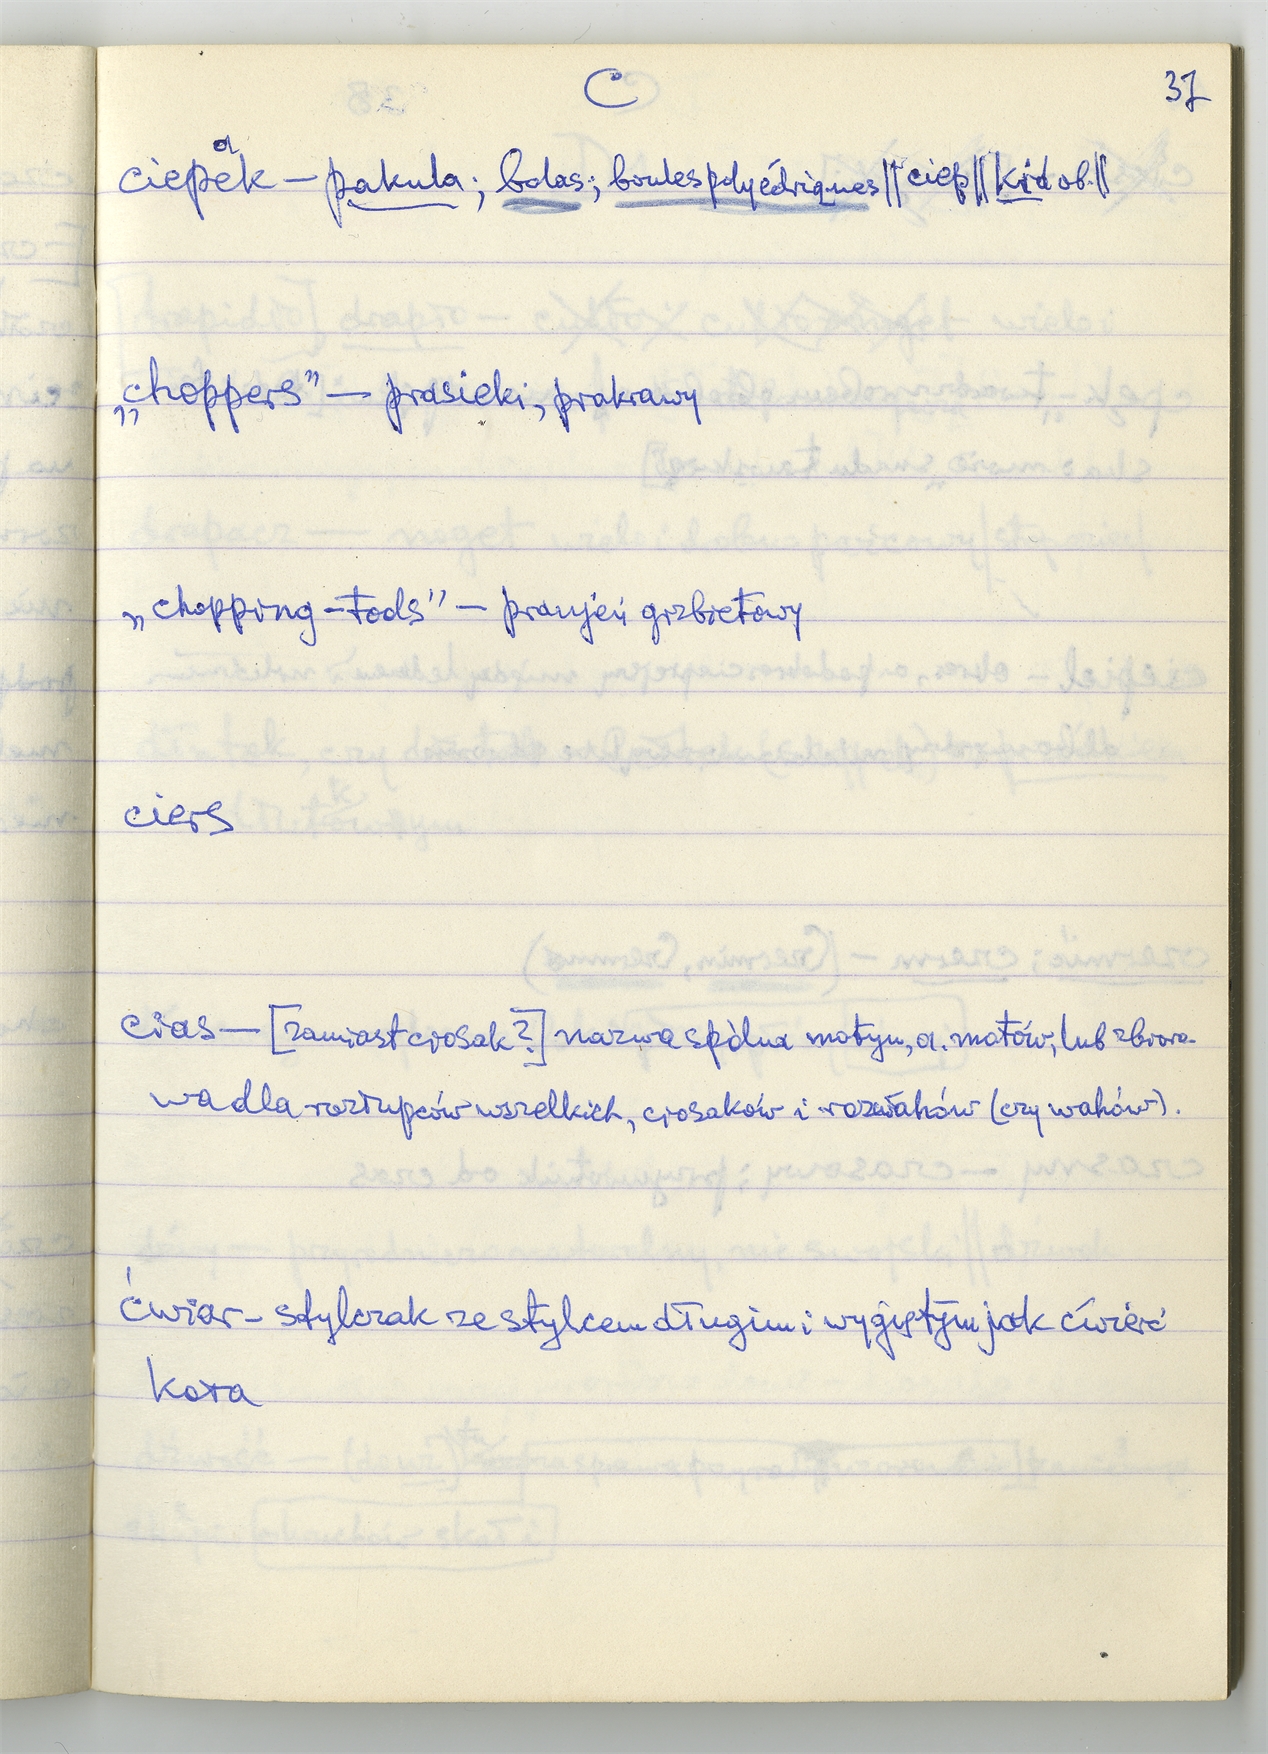 C 37
ciepek – pakuła; bolas; boules polyédriques || ciep || kid ob. ||
„choppers” – prasieki, prakrawy
„chopping-tools” – pranjeń grzbietowy
ciers
cias – [zamiast ciosak?] nazwa spólna motyn, a. motów, lub zbioro-
wa dla roztupców wszelkich, ciosaków i rozwahów (czy wahów).
ćwiar – stylczak ze stylcem długim i wygiętym jak ćwierć
koła